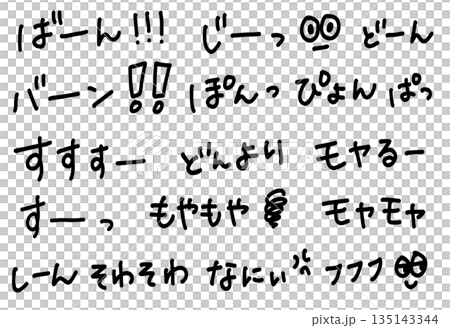 ばーん!!! じーっ どーん
バーン!! ぽんっ ぴょん ぱっ
すすすー どんより モヤるー
すーっ もやもや モヤモヤ
しーん そわそわ なにぃ フフフ
135143344